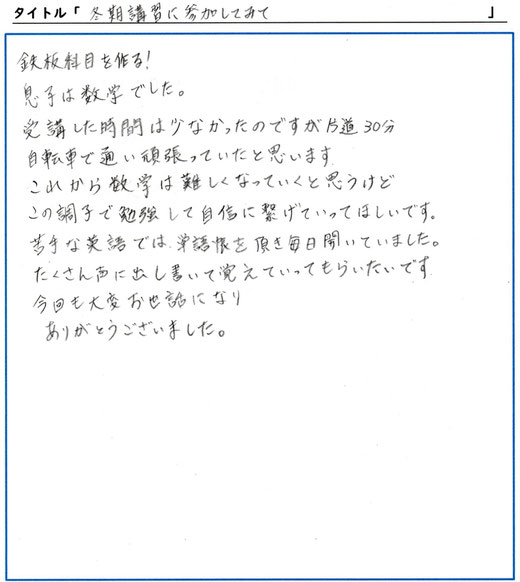 タイトル「 冬期講習に参加してみて 」
鉄板科目を作る!
息子は数学でした。
受講した時間は少なかったのですが片道30分
自転車で通い頑張っていたと思います
これから数学は難しくなっていくと思うけど
この調子で勉強して自信に繋げていってほしいです。
苦手な英語では、単語帳を頂き毎日開いていました。
たくさん声に出し書いて覚えていってもらいたいです
今回も大変お世話になり
ありがとうございました。